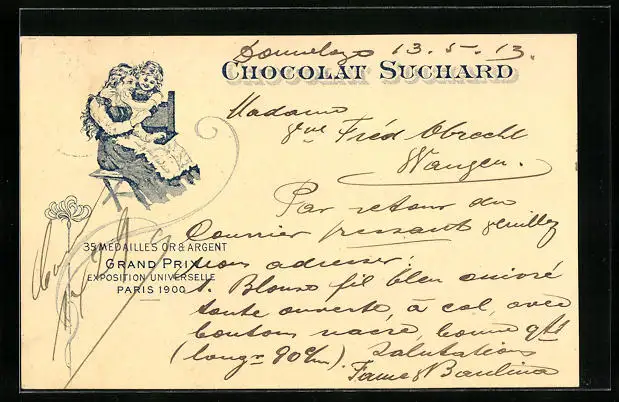 13.5.13.
CHOCOLAT SUCHARD
Madame
Vve Fréd Obrecht
Wangen.
Par retour du
Courrier pressant veuillez
nous adresser:
1. Blouse fil bleu
toute ouverte, à col, avec
boutons nacre, bonne qté
(longr 90 c/m). Salutations
35 MEDAILLES OR & ARGENT
GRAND PRIX
EXPOSITION UNIVERSELLE
PARIS 1900